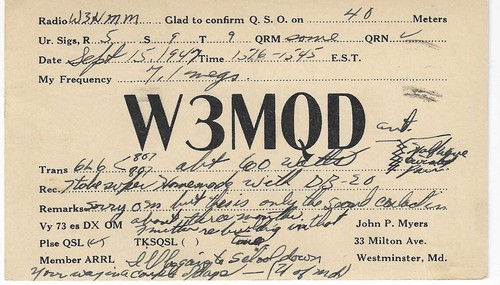 Radio W3HMM Glad to confirm Q. S. O. on 40 Meters
Ur. Sigs, R 5 S 9 T 9 QRM some QRN ✓
Date Sept 15, 1947 Time 1526-1545 E.S.T.
My Frequency 7.1 megs.
W3MQD
ant.
Trans 6L6 < 807 807 abt 60 watts
Rec. super Homemade with DB-20
Remarks Sorry o.m. but this is only the second
Vy 73 es DX OM about three months. John P. Myers
Plse QSL TKSQSL ( ) 33 Milton Ave.
Member ARRL I'll be going to School down Westminster, Md.
Your way in a couple of days - (U of Md)